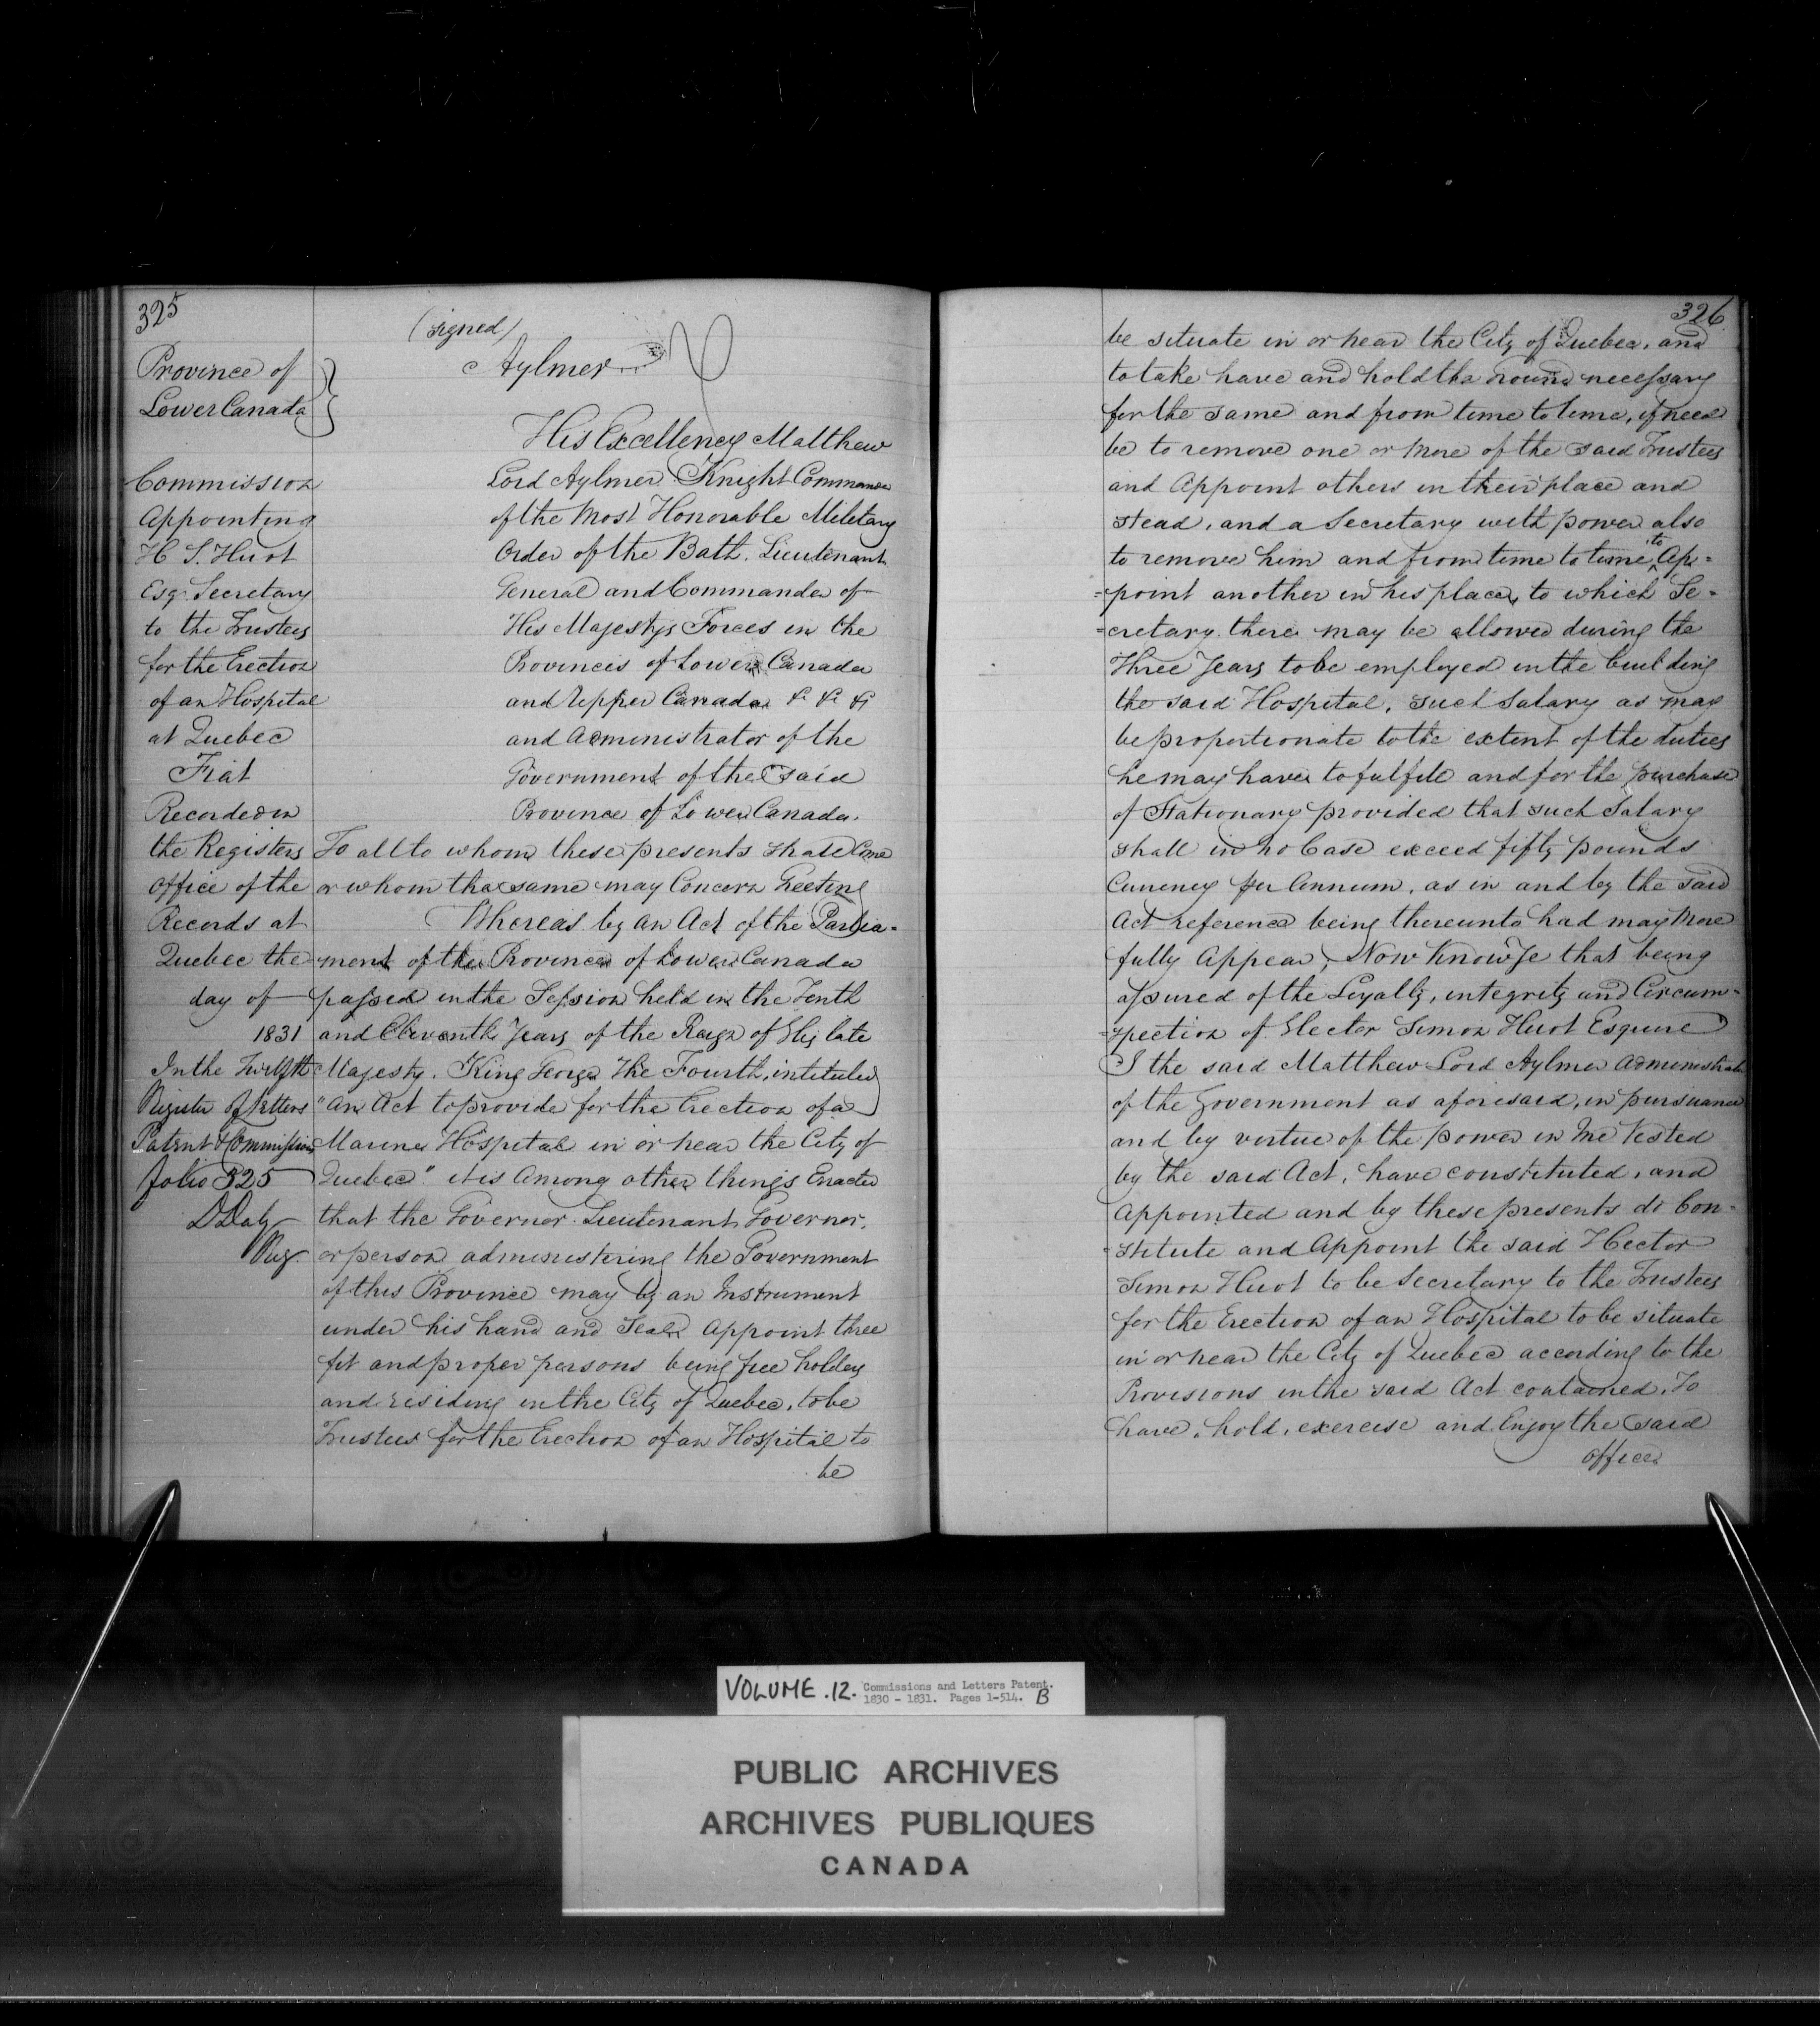 325
(signed)
Aylmer
Province of
Lower Canada
Commission
Appointing
H S. Huot
Esqr. Secretary
to the Trustees
for the Erection
of an Hospital
at Quebec
Fiat
Recorded in
the Registers
Office of the
Records at
Quebec the
day of
1831
In the Twelfth
Register of Letters
Patent & Commissions
folio 325
D Daly
Reg.
His Excellency Matthew
Lord Aylmer Knight Commander
of the Most Honorable Military
Order of the Bath. Lieutenant
General and Commander of
His Majestys Forces in the
Provinces of Lower Canada
and Upper Canada &c &c &c
and Administrator of the
Government of the said
Province of Lower Canada.
To all to whom these presents shall Come
or whom the same may Concern Greeting
Whereas by an Act of the Parlia-
ment of the Province of Lower Canada
passed in the Session held in the Tenth
and Eleventh Years of the Reign of His late
Majesty. King George The Fourth, intituled
"An Act to provide for the Erection of a
Marine Hospital in or near the City of
Quebec" it is Among other things Enacted
that the Governor Lieutenant Governor,
or person administering the Government
of this Province may by an Instrument
under his hand and Seal Appoint three
fit and proper persons being free holders
and residing in the City of Quebec, to be
Trustees for the Erection of an Hospital to
be
326
be situate in or near the City of Quebec, and
to take have and hold the Ground necessary
for the same and from time to time, if need
be to remove one or more of the said Trustees
and Appoint others in their place and
stead, and a Secretary with power also
to remove him and from time to time to Ap=
=point another in his place, to which Se=
=cretary there may be allowed during the
Three Years to be employed in the building
the said Hospital, such Salary as may
be proportionate to the extent of the duties
he may have to fulfil and for the purchase
of Stationary provided that such Salary
shall in no Case exceed fifty pounds
Currency per Annum, as in and by the said
Act reference being thereunto had may More
fully Appear; Now Know Ye that being
assured of the Loyalty, integrity and Circum=
=spection of Hector Simon Huot Esquire
I the said Matthew Lord Aylmer Administrator
of the Government as aforesaid, in pursuance
and by virtue of the power in Me Vested
by the said Act, have constituted, and
Appointed and by these presents do Con=
=stitute and Appoint the said Hector
Simon Huot to be Secretary to the Trustees
for the Erection of an Hospital to be situate
in or near the City of Quebec according to the
Provisions in the said Act contained, To
have, hold, exercise and Enjoy the said
office
VOLUME .12. Commissions and Letters Patent.
1830 - 1831. Pages 1-514. B
PUBLIC ARCHIVES
ARCHIVES PUBLIQUES
CANADA